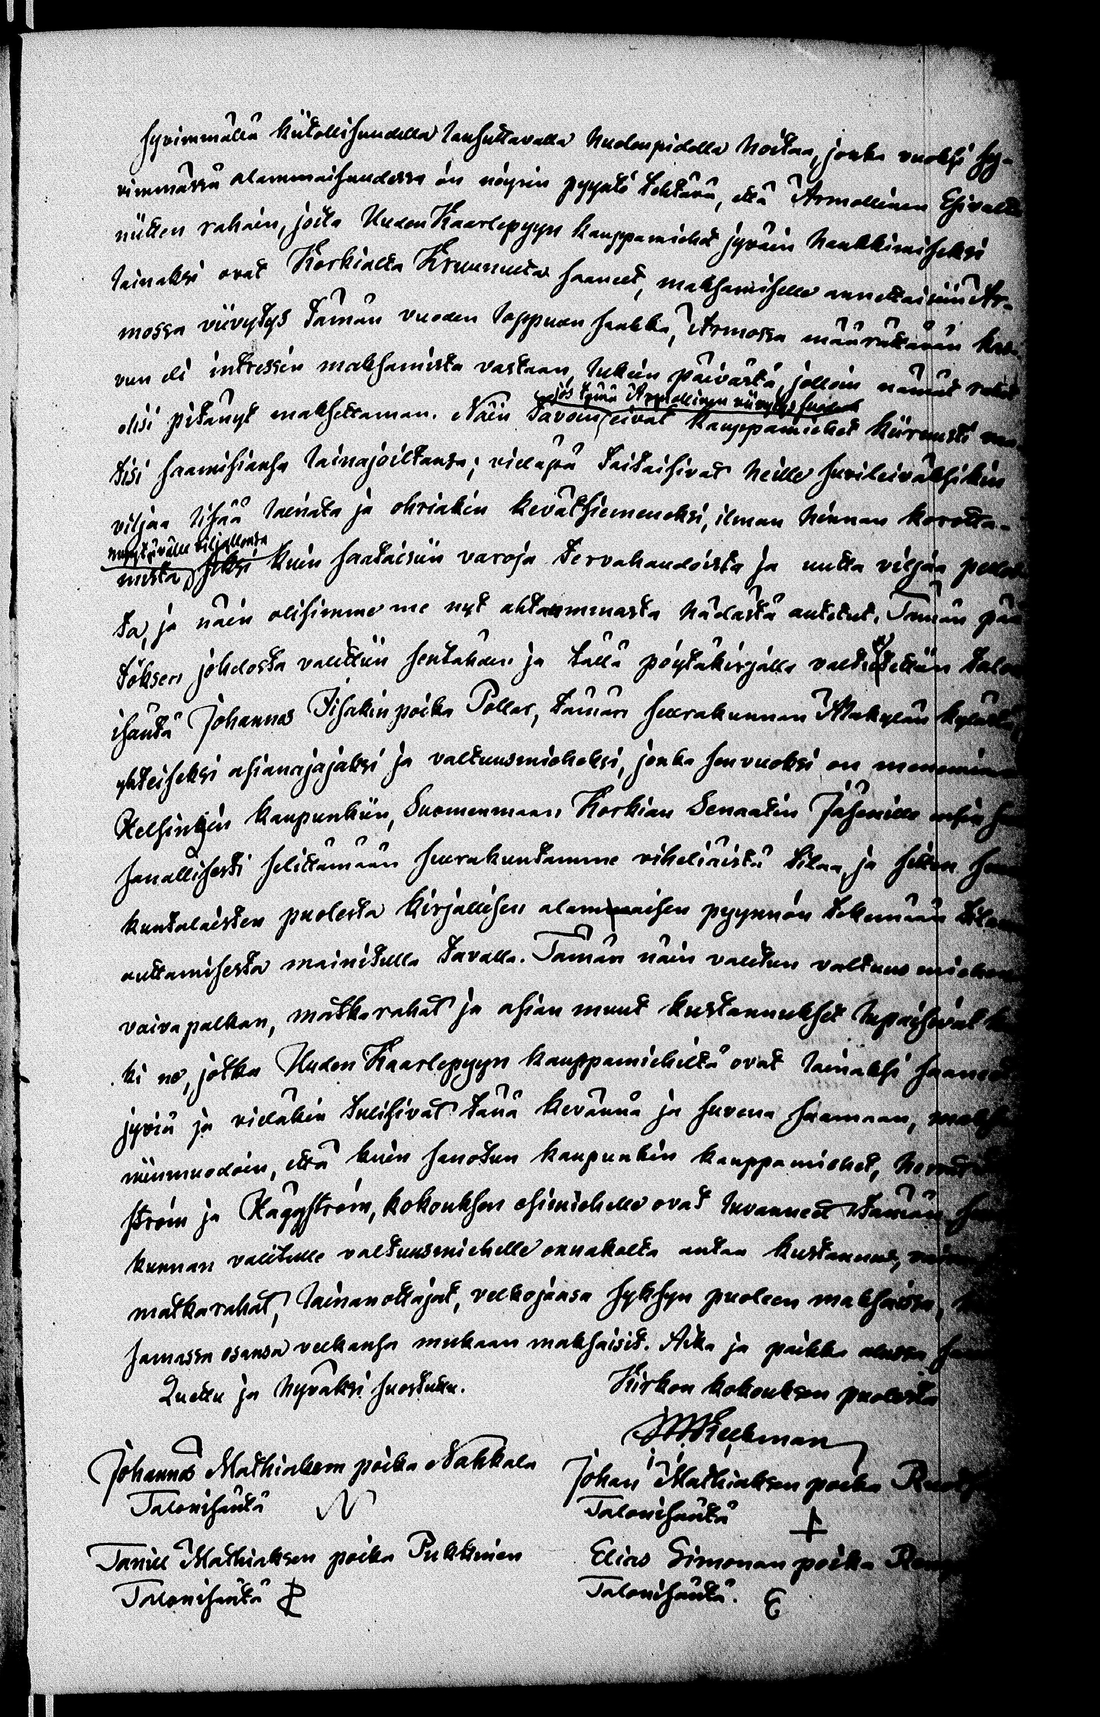 syvimmällä kiitollisuudella rauhuttavalla huolenpidolla hoitaa, jonka vuoksi sy-
vimmässä alammaisuudessa on nöyrin pyyntö tehtävä, että Armollinen Esivalta
niitten rahain, joita Uuden Kaarlepyyn kauppamiehet jyväin hankkimiseksi
lainaksi ovat Korkialta Kruunulta saaneet, maksamiselle annettaisiin Ar-
mossa viivytys tämän vuoden loppuun saakka, Armossa määrättävän kas-
vun eli intressin maksamista vastaan, lukein päivästä, jolloin nämät rahat
olisi pitänyt maksettaman. Näin tavoin
jos tämä Armollinen viivytys
eivät kauppamiehet kiiruusti
tisi saamisiansa lainajoiltansa; vieläpä taitaisivat heille suvileiväksikin
viljaa lisää lainata ja ohriakin kevätsiemeneksi, ilman hinnan korotta-
nimästävälle viljallensa
mista, siksi kuin saataisiin varoja tervahaudoista ja uutta viljaa
ta, ja näin olisimme me nyt ahtaimmasta hädästä autetut. Tämän pää-
töksen johdosta valittiin sentähden ja tällä pöytäkirjalla valtuutettiin talon
isäntä Johannes Iisakin poika Pollar, tämän seurakunnan Alakylän kylästä,
yhteiseksi asianajajaksi ja valtuusmieheksi, jonka senvuoksi on meneminen
Helsingin kaupunkiin, Suomenmaan Korkian Senaatin Jäsenille ensin
sanallisesti selittämään seurakuntamme viheliäistä tilaa, ja sitten
kuntalaisten puolesta kirjallisen alammaisen pyynnön tekemään tilan
auttamisesta mainitulla tavalla. Tämän näin valitun valtuusmiehen
vaivapalkan, matkarahat ja asian muut kustannukset lupaisivat
ki ne, jotka Uuden Kaarlepyyn kauppamiehiltä ovat lainaksi saaneet
jyviä ja vieläkin tulisivat tänä keväänä ja suvena saamaan, maksaa
niinmuodoin, että kuin sanotun kaupunkin kauppamiehet, herrat
ström ja Häggström, kokouksen esimiehelle ovat luvanneet tämän
kunnan valitulle valtuusmiehelle ennakolta antaa kustannus,
matkarahat, lainanottajat, velkojansa syksyn puoleen maksaissa,
samassa osansa velkansa mukaan maksaisit. Aika ja paikka
Luettu ja hyväksi suostuttu.
Kirkon kokouksen puolesta
Johannes Mathiaksen poika Nahkala
Talonisäntä N
Johan Mathiaksen poika
Talonisäntä
Taniel Mathiaksen poika Pukkinen
Talonisäntä P
Elias Simonan poika
Talonisäntä. E